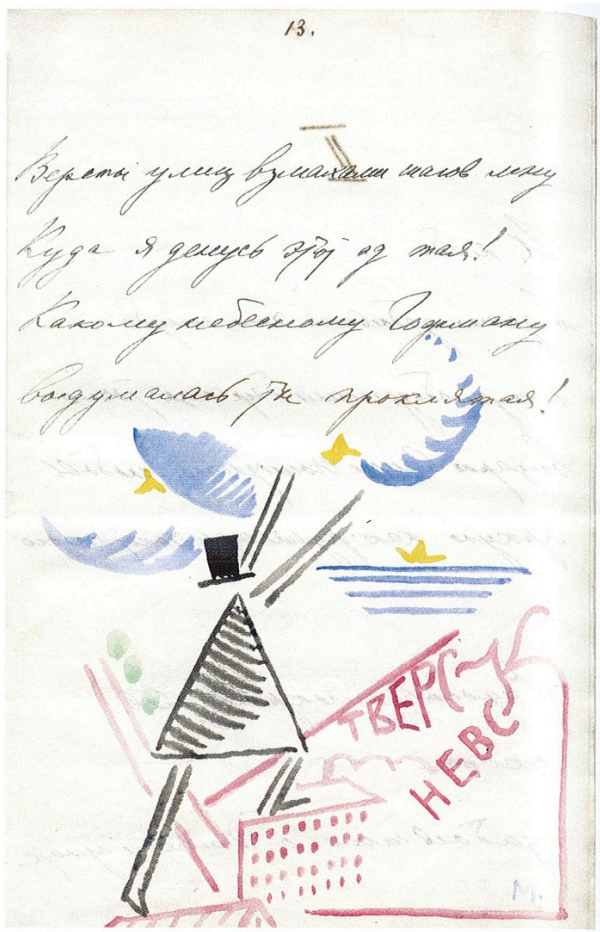 13.
Версты улиц взмахами шагов мну
Куда я денусь этот ад тая!
Какому небесному Гофману
выдумалась ты проклятая!
ТВЕРС
НЕВС
М.